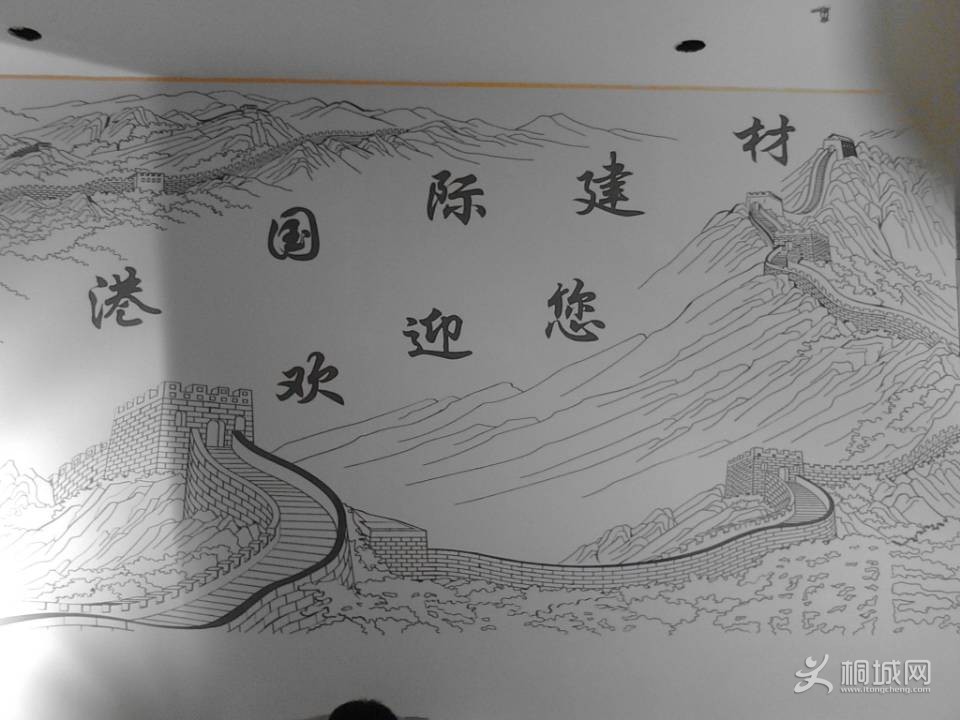 港国际建材
欢迎您
桐城网
www.itongcheng.com